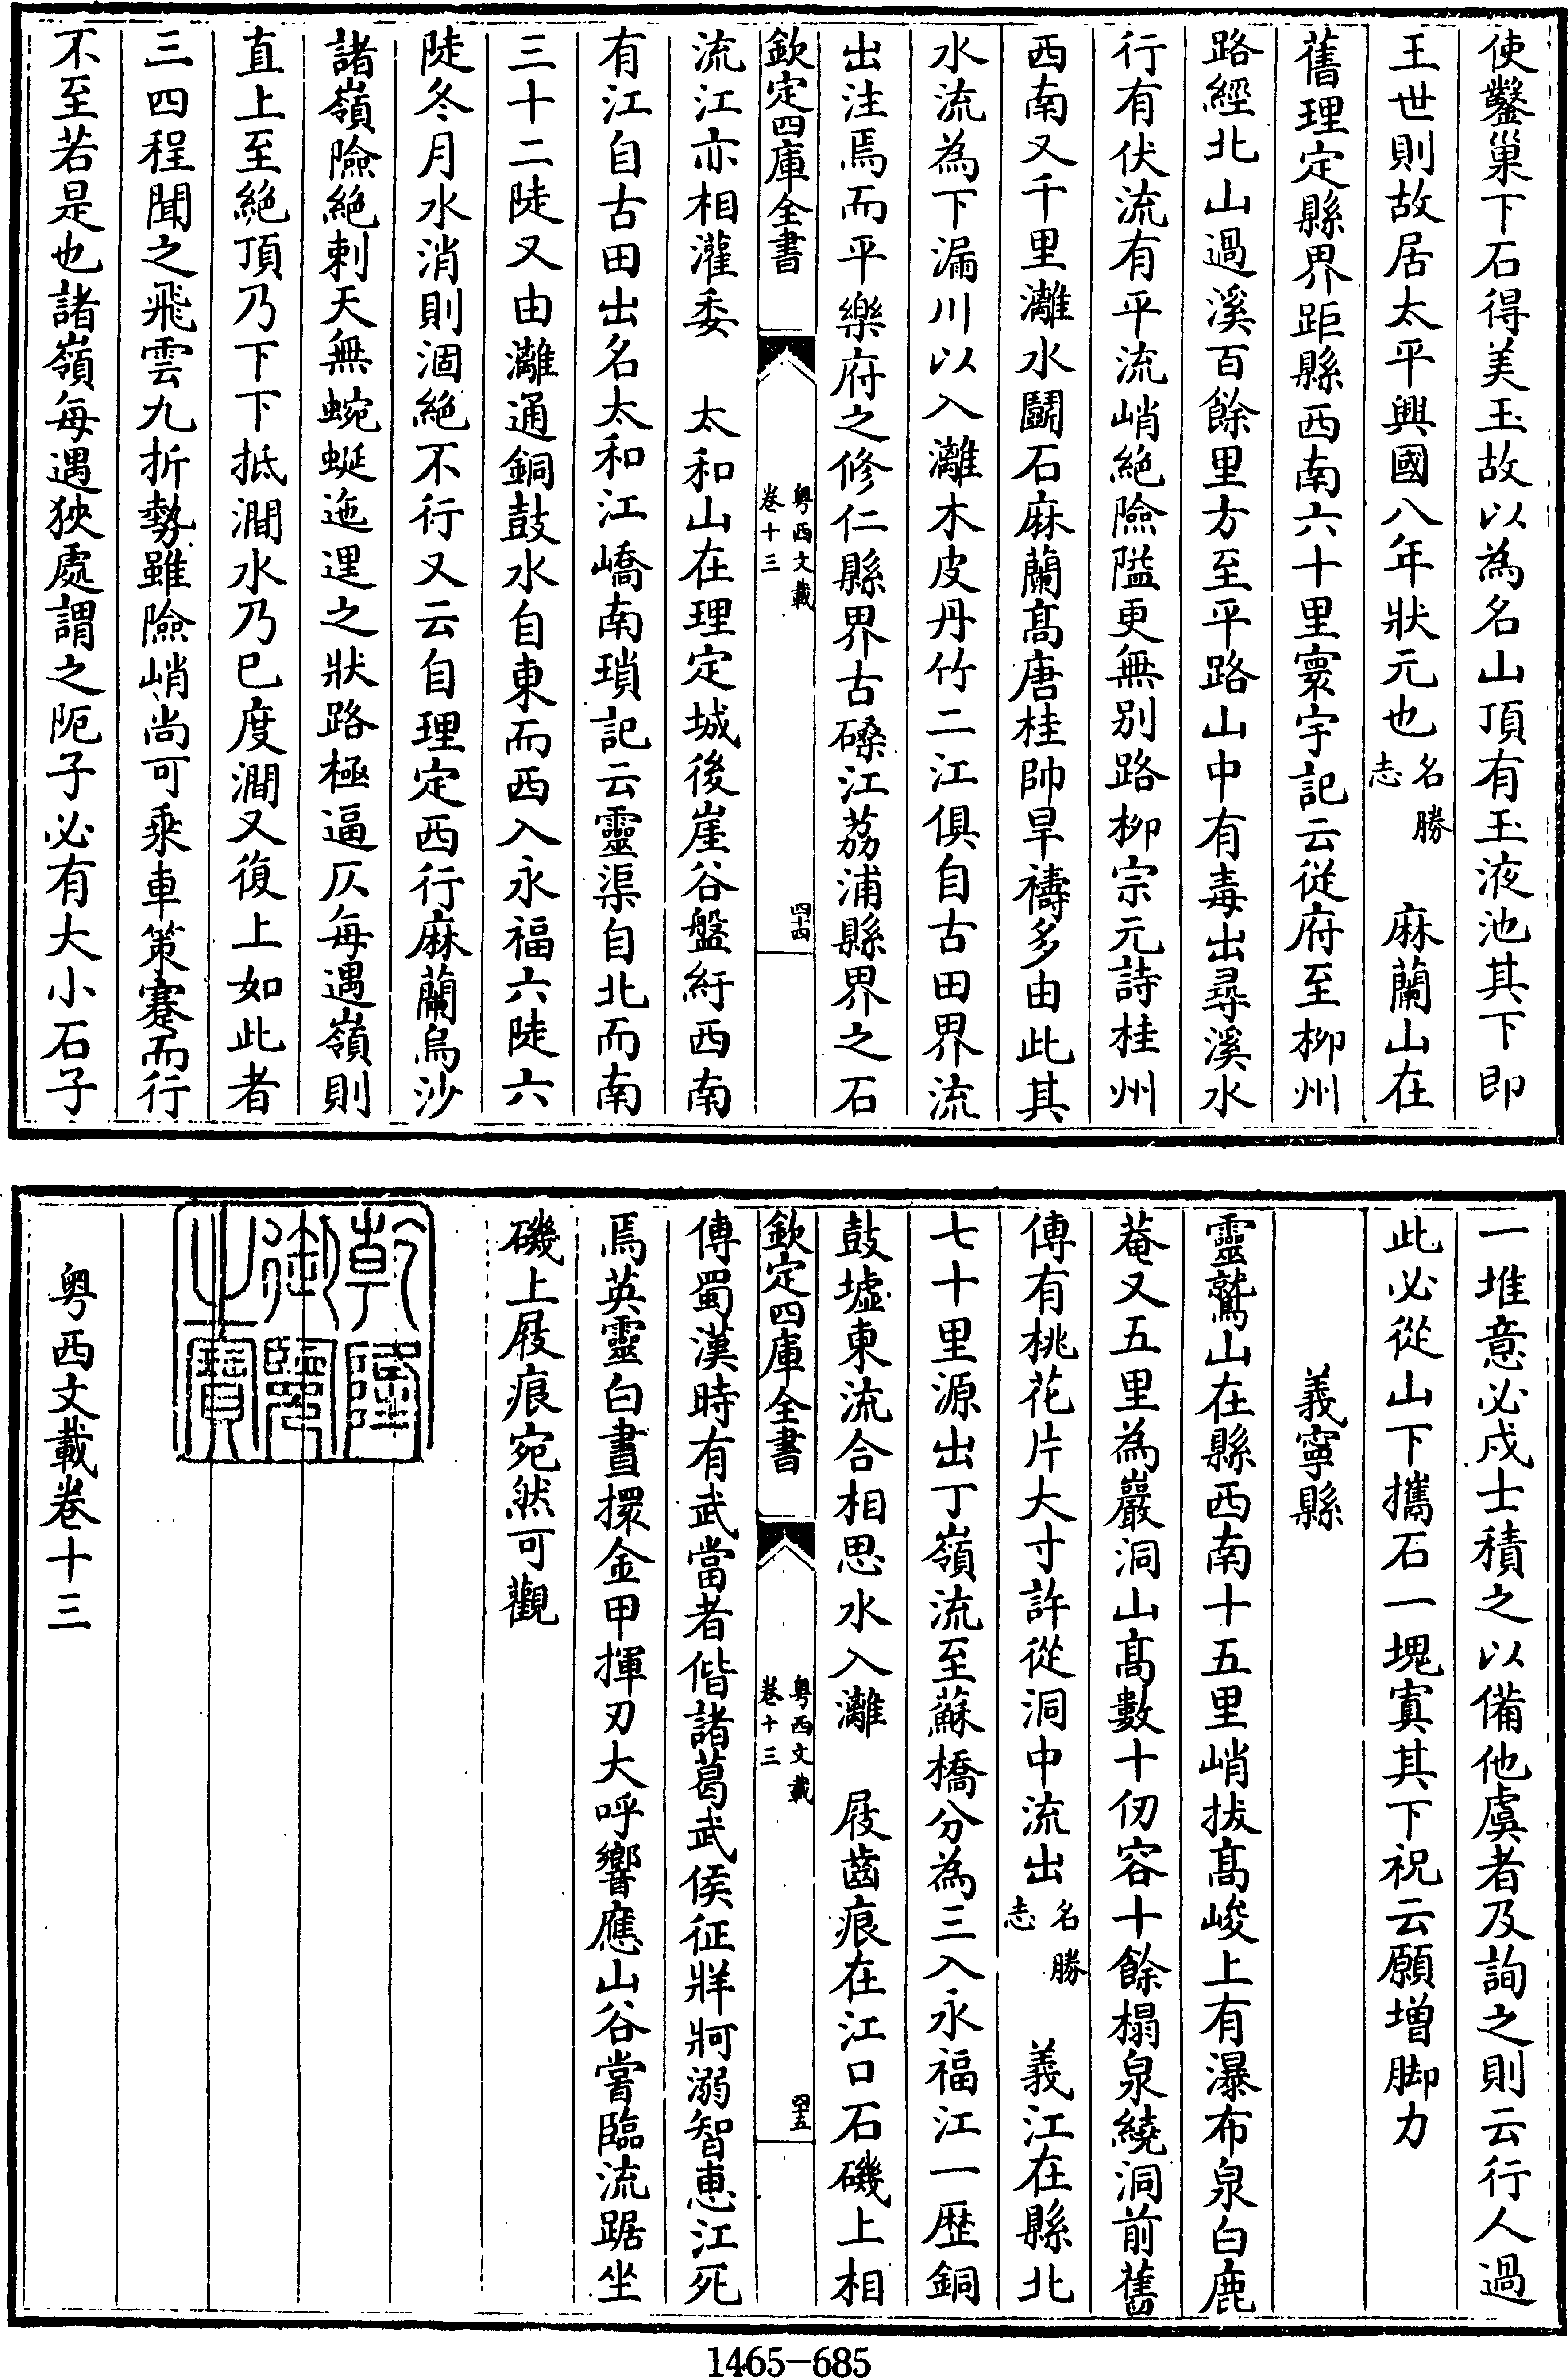 使鑿巢下石得美玉故以為名山頂有玉液池其下即
王世則故居太平興國八年狀元也名勝志　麻蘭山在
舊理定縣界距縣西南六十里寰宇記云從府至柳州
路經北山過溪百餘里方至平路山中有毒出尋溪水
行有伏流有平流峭絶險隘更無别路柳宗元詩桂州
西南又千里灕水鬬石麻蘭髙唐桂帥旱禱多由此其
水流為下漏川以入灕木皮丹竹二江俱自古田界流
出注焉而平樂府之修仁縣界古磉江荔浦縣界之石
欽定四庫全書
粤西文載
卷十三
四十四
流江亦相灌委　太和山在理定城後崖谷盤紆西南
有江自古田出名太和江嶠南瑣記云靈渠自北而南
三十二陡又由灕通銅鼓水自東而西入永福六陡六
陡冬月水消則涸絶不行又云自理定西行麻蘭烏沙
諸嶺險絶刺天無蜿蜒迤逦之狀路極逼仄每遇嶺則
直上至絶頂乃下下抵澗水乃已度澗又復上如此者
三四程聞之飛雲九折勢雖險峭尚可乘車策蹇而行
不至若是也諸嶺每遇狹處謂之阨子必有大小石子
一堆意必戍士積之以備他虞者及詢之則云行人過
此必從山下攜石一塊寘其下祝云願增脚力
義寧縣
靈鷲山在縣西南十五里峭拔髙峻上有瀑布泉白鹿
菴又五里為巖洞山髙數十仞容十餘榻泉繞洞前舊
傳有桃花片大寸許從洞中流出名勝志　義江在縣北
七十里源出丁嶺流至蘇橋分為三入永福江一歴銅
鼓墟東流合相思水入灕　屐齒痕在江口石磯上相
欽定四庫全書
粤西文載
卷十三
四十五
傳蜀漢時有武當者偕諸葛武侯征牂牁溺智惠江死
焉英靈白晝擐金甲揮刃大呼響應山谷嘗臨流踞坐
磯上屐痕宛然可觀
乾隆御覽之寶
粤西文載卷十三
1465-685